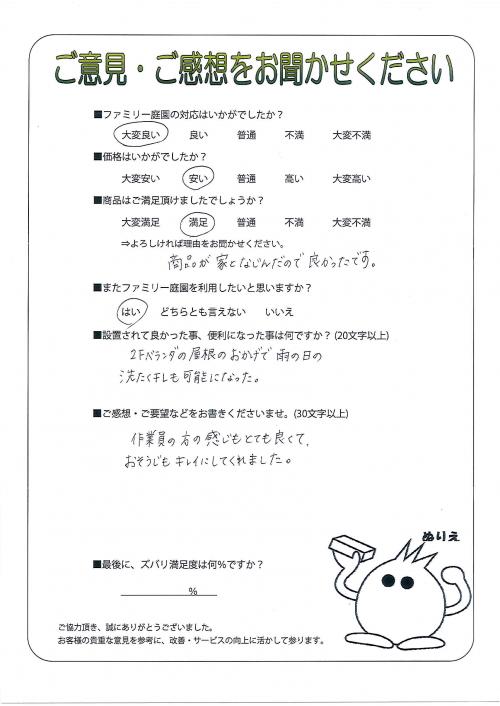 ご意見・ご感想をお聞かせください
■ファミリー庭園の対応はいかがでしたか？
大変良い 良い 普通 不満 大変不満
■価格はいかがでしたか？
大変安い 安い 普通 高い 大変高い
■商品はご満足頂けましたでしょうか？
大変満足 満足 普通 不満 大変不満
⇒よろしければ理由をお聞かせください。
商品が家となじんだので良かったです。
■またファミリー庭園を利用したいと思いますか？
はい どちらとも言えない いいえ
■設置されて良かった事、便利になった事は何ですか？(20文字以上)
2Fベランダの屋根のおかげで雨の日の
洗たく干しも可能になった。
■ご感想・ご要望などをお書きくださいませ。(30文字以上)
作業員の方の感じもとても良くて、
おそうじもキレイにしてくれました。
ぬりえ
■最後に、ズバリ満足度は何％ですか？
％
ご協力頂き、誠にありがとうございました。
お客様の貴重な意見を参考に、改善・サービスの向上に活かして参ります。